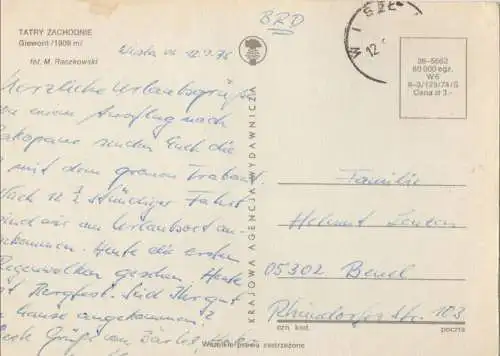 TATRY ZACHODNIE
Giewont (1909 m)
fot. M. Raczkowski
12.9.76
BRD
WISŁ
12.
36-5552
60 000 egz.
W6
Cena zł 3.-
Herzliche Urlaubsgrüße
einem Ausflug nach
Zakopane senden Euch die
mit dem grauen Trabant.
Nach 12 ½ stündiger Fahrt
sind wir am Urlaubsort an-
gekommen. Heute die ersten
Regenwolken gesehen. Heute
ist Bergfest. Seid Ihr gut
angekommen?
Grüße von
KRAJOWA AGENCJA WYDAWNICZA
Familie
Helmut
05302 Beuel
Rheindorfer Str. 103
ozn. kod.
poczta
Wszelkie prawa zastrzeżone